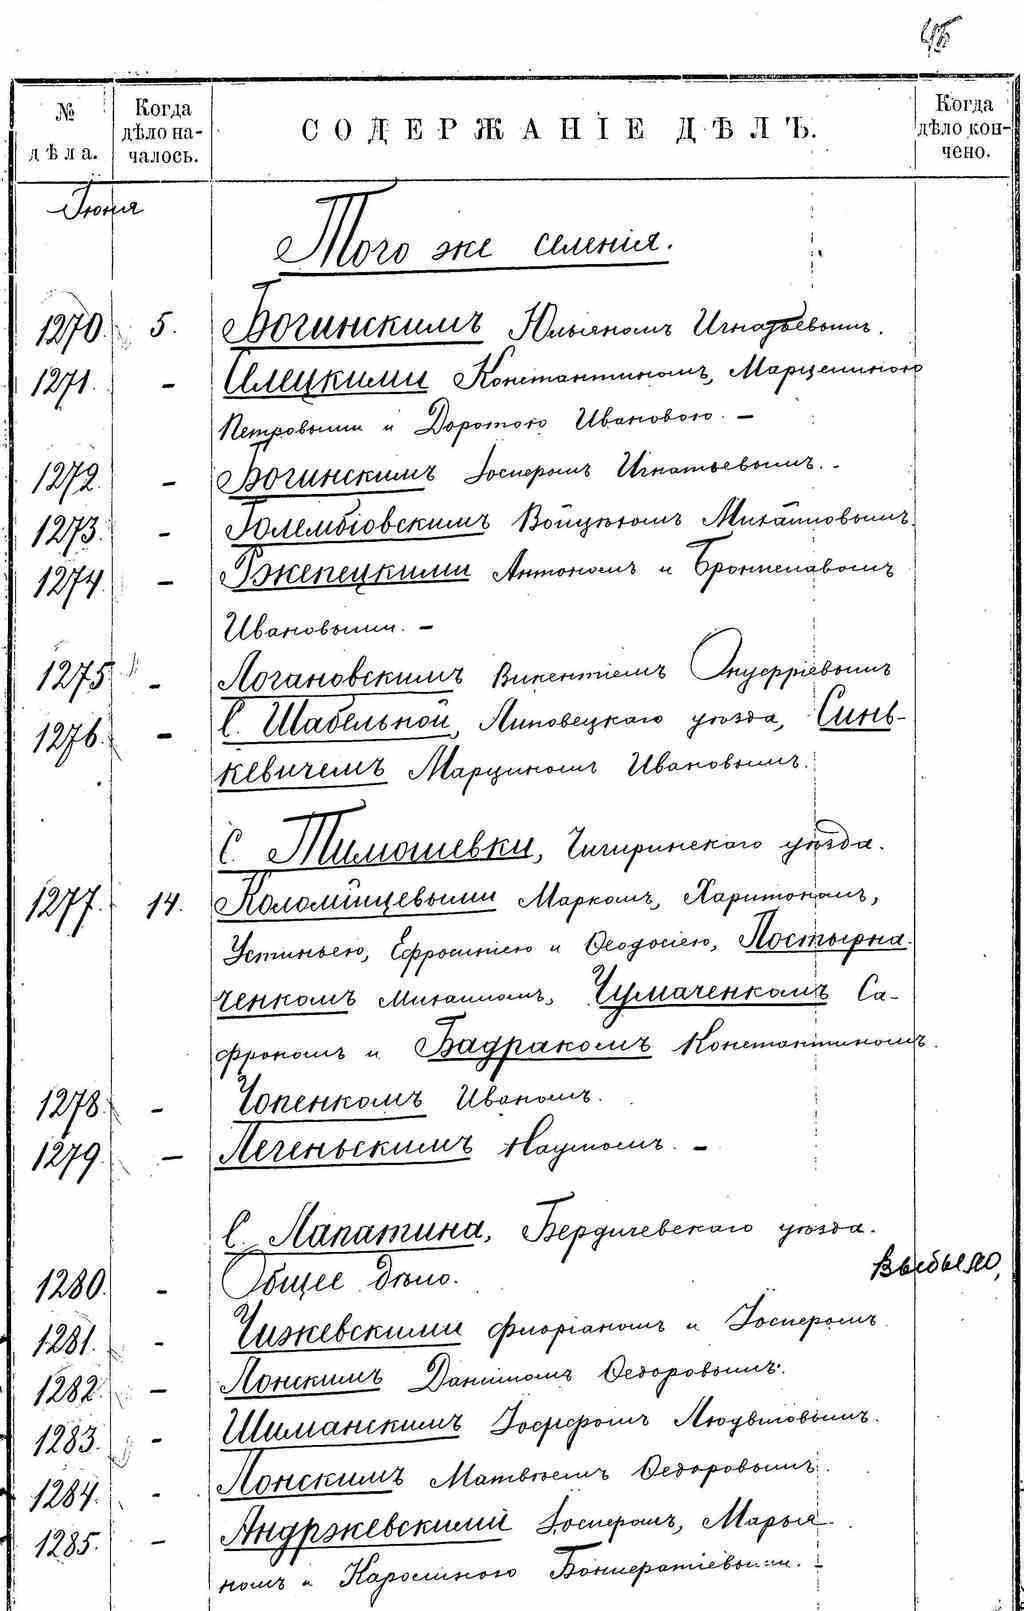 № дѣла.
Когда дѣло началось.
СОДЕРЖАНІЕ ДѢЛЪ.
Когда дѣло кончено.
Іюня
Того же селенія.
1270. 5. Богинскимъ Юльяномъ Игнатьевымъ.
1271. - Илецкими Константиномъ, Марцелиною
Петровыми и Доротою Ивановою. -
1272. - Богинскимъ Іосифомъ Игнатьевымъ. -
1273. - Голембіовскимъ Войцѣхомъ Михайловымъ.
1274. - Ржепецкими Антономъ и Брониславомъ
Ивановыми. -
1275 - Логановскимъ Викентіемъ Онуфріевымъ
1276. - С. Шабельной, Липовецкаго уѣзда, Синь-
кевичемъ Марциномъ Ивановымъ.
С. Тимошевки, Чигиринскаго уѣзда.
1277. 14. Коломійцевыми Маркомъ, Харитономъ,
Устиньею, Ефросиніею и Ѳеодосіею, Постырна-
ченкомъ Михаиломъ, Чумаченкомъ Са-
фрономъ и Бадракомъ Константиномъ.
1278. - Чопенкомъ Иваномъ.
1279. - Легеньскимъ Наумомъ. -
С. Лапатина, Бердичевскаго уѣзда.
1280. - Общее дѣло. Выбыло,
1281. - Чижевскими Флоріаномъ и Іосифомъ.
1282. - Лонскимъ Даніиломъ Ѳедоровымъ.
1283. - Шиманскимъ Іосифомъ Людвиговымъ.
1284. - Лонскимъ Матвѣемъ Ѳедоровымъ.
1285. - Андржевскими Іосифомъ, Марья-
номъ и Каролиною Бонифатіевыми. -